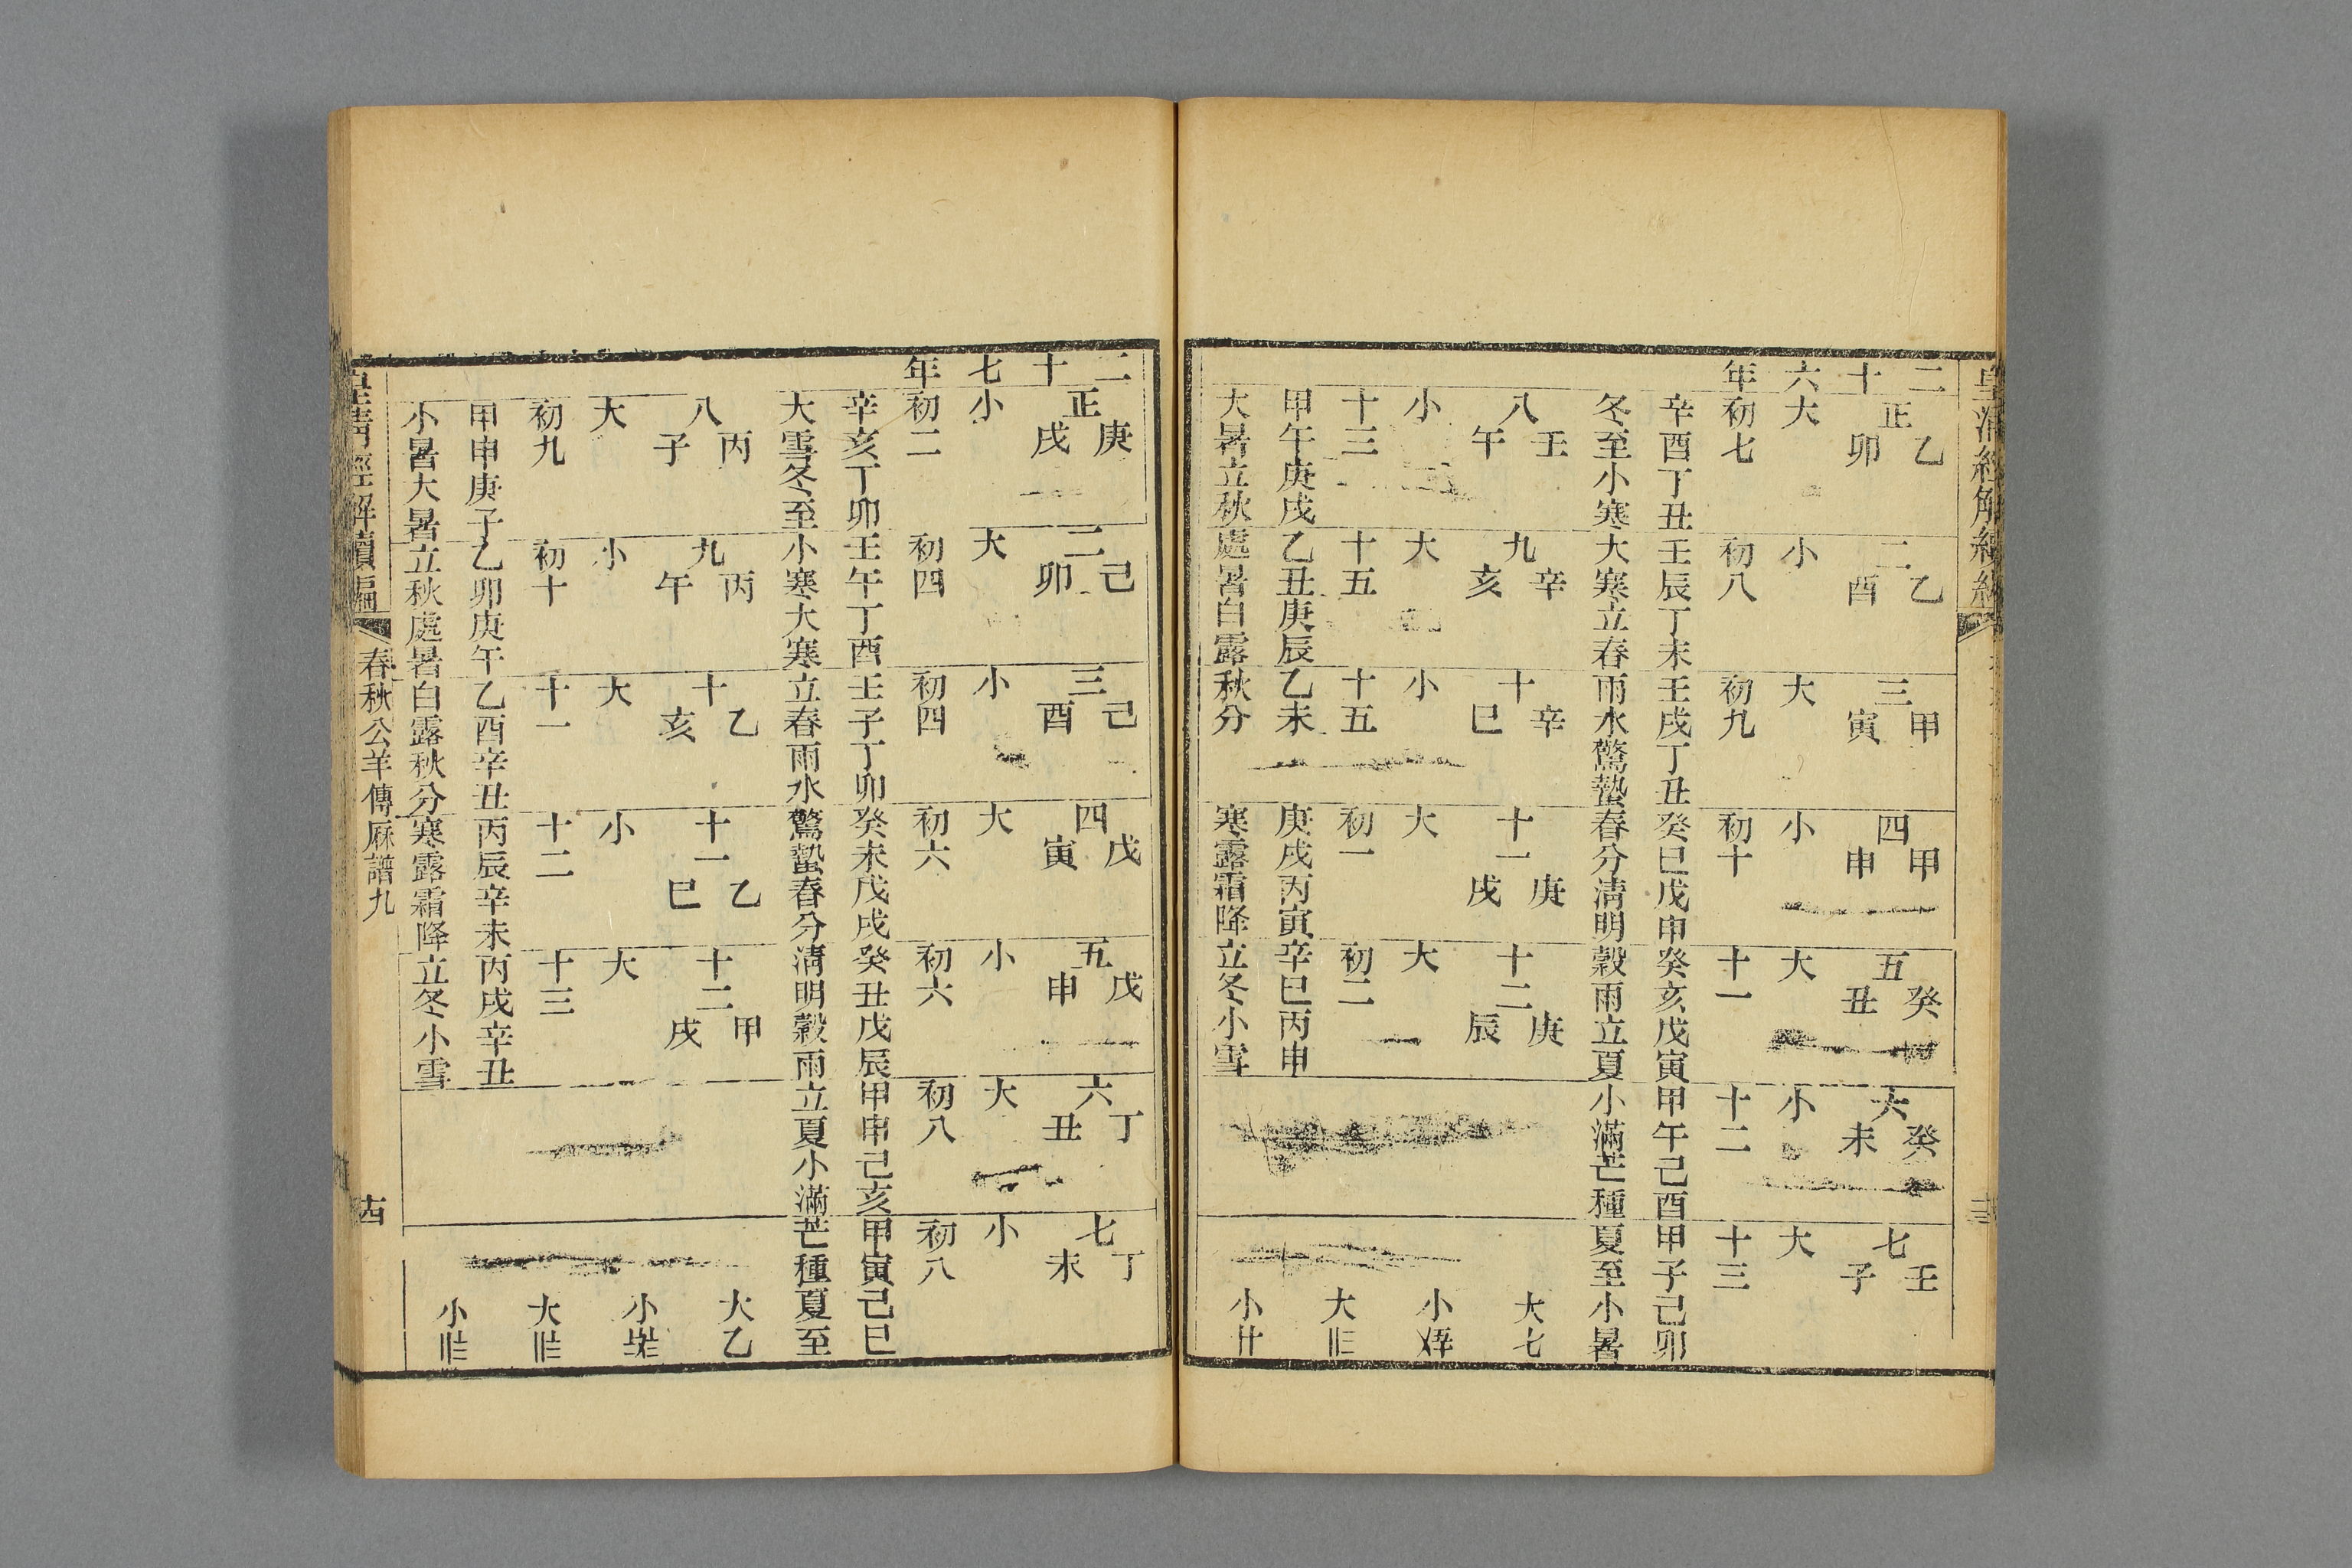 皇清經解續編
二十六年
正乙卯
大
初七
辛酉丁丑
冬至小寒
二乙酉
小
初八
壬辰丁未
大寒立春
三甲寅
大
初九
壬戌丁丑
雨水驚蟄
四甲申
小
初十
癸巳戊申
春分清明
五癸丑
大
十一
癸亥戊寅
穀雨立夏
六癸未
小
十二
甲午己酉
小滿芒種
七壬子
大
十三
甲子己卯
夏至小暑
八壬午
小
十三
甲午庚戌
大暑立秋
九辛亥
大
十五
乙丑庚辰
處暑白露
十辛巳
小
十五
乙未
秋分
十一庚戌
大
初一
庚戌丙寅
寒露霜降
十二庚辰
大
初二
辛巳丙申
立冬小雪
大七
小
大
小
二十七年
正庚戌
小
初二
辛亥丁卯
大雪冬至
二己卯
大
初四
壬午丁酉
小寒大寒
三己酉
小
初四
壬子丁卯
立春雨水
四戊寅
大
初六
癸未戊戌
驚蟄春分
五戊申
小
初六
癸丑戊辰
清明穀雨
六丁丑
大
初八
甲申己亥
立夏小滿
七丁未
小
初八
甲寅己巳
芒種夏至
八丙子
大
初九
甲申庚子
小暑大暑
九丙午
小
初十
乙卯庚午
立秋處暑
十乙亥
大
十一
乙酉辛丑
白露秋分
十一乙巳
小
十二
丙辰辛未
寒露霜降
十二甲戌
大
十三
丙戌辛丑
立冬小雪
大乙
小
大
小
皇清經解續編
春秋公羊傳厤譜九